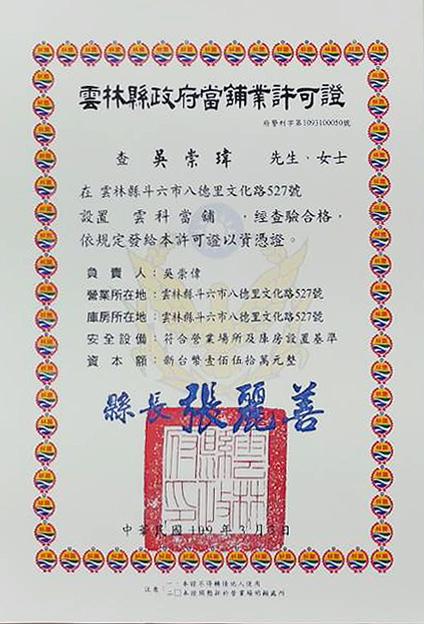 雲林縣政府當舖業許可證
府警刑字第1093100050號
查 吳崇瑋 先生、女士
在 雲林縣斗六市八德里文化路527號
設置 雲科當舖 ，經查驗合格，
依規定發給本許可證以資憑證。
負責人：吳崇偉
營業所在地：雲林縣斗六市八德里文化路527號
庫房所在地：雲林縣斗六市八德里文化路527號
安全設備：符合營業場所及庫房設置基準
資本額：新台幣壹佰伍拾萬元整
縣長 張麗善
雲林縣政府印
中華民國109年3月 日
注意：一、本證不得轉借他人使用
二、本證須懸掛於營業場明顯處所